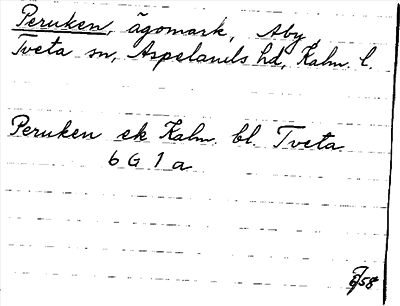 Peruken, ägomark, Åby,
Tveta sn, Aspelands hd, Kalm. l.
Peruken ek Kalm. bl. Tveta
6 G 1 a